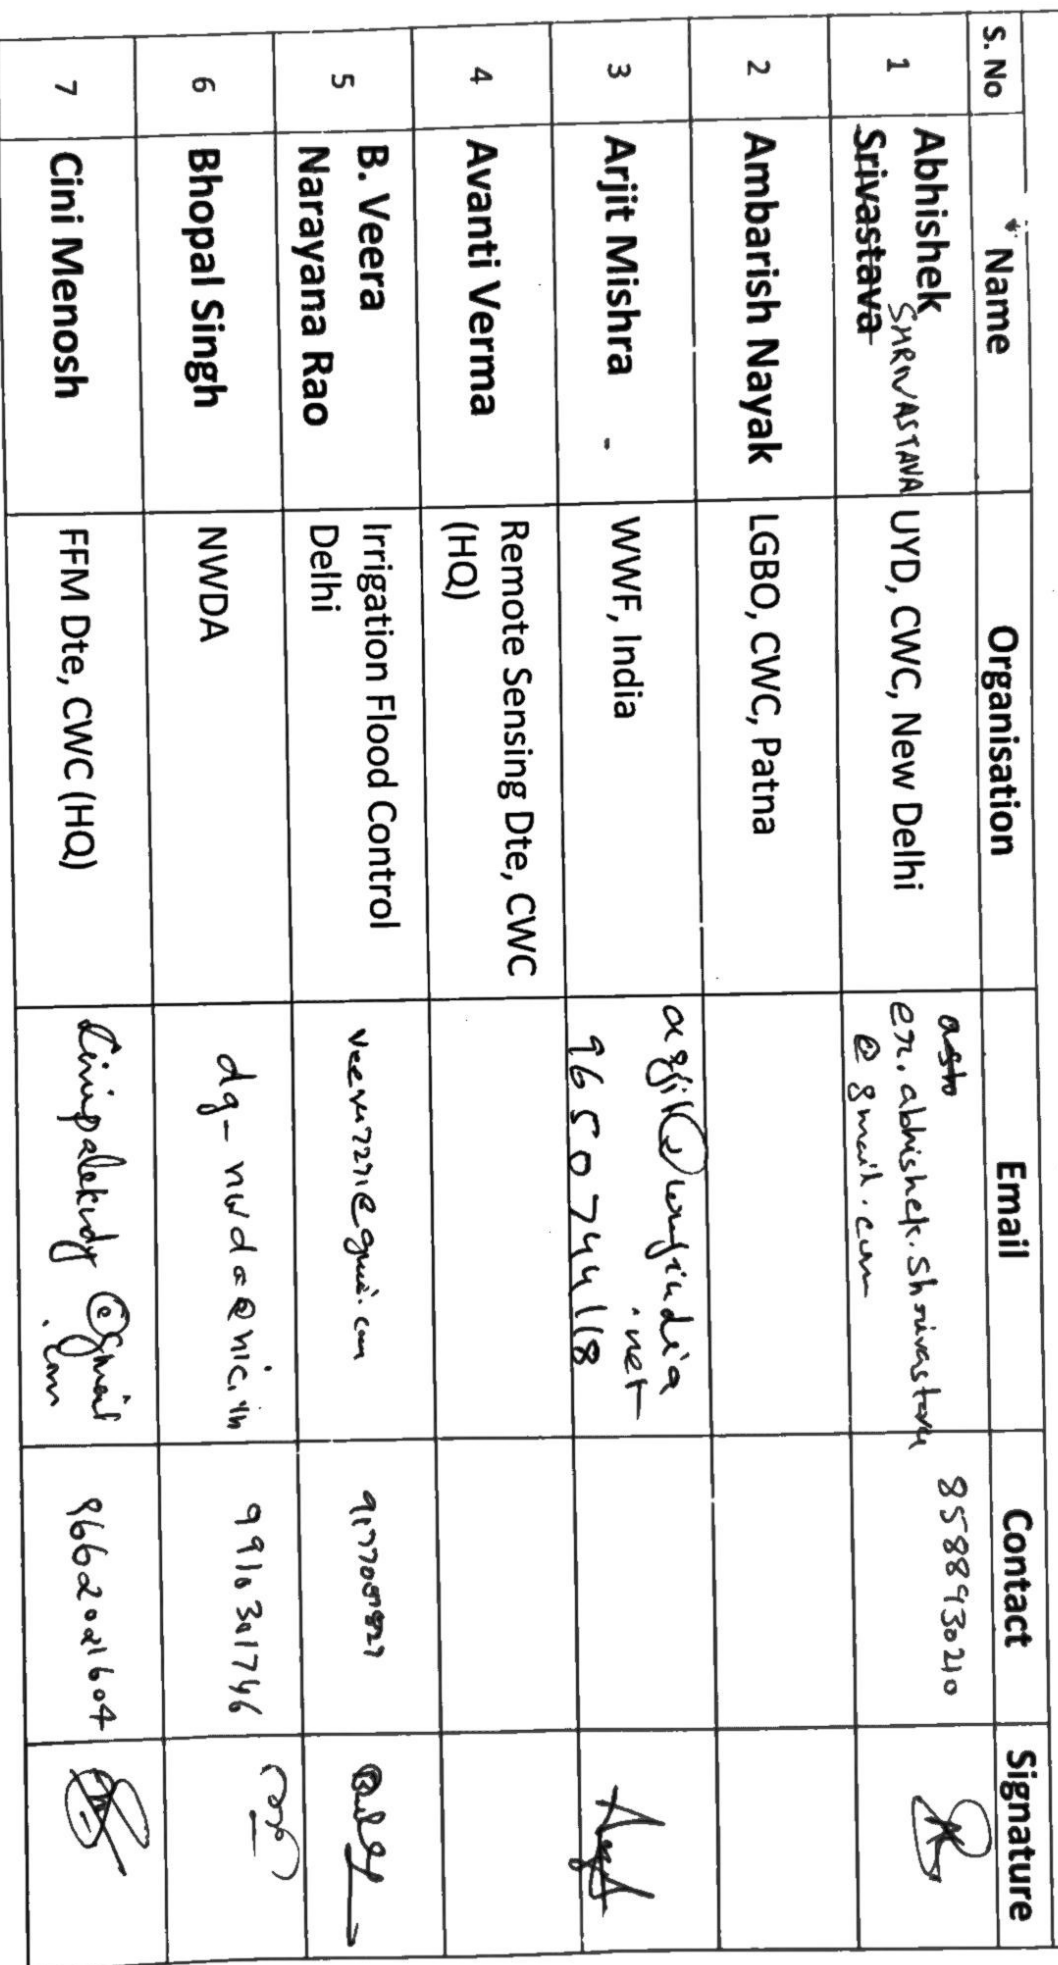 S. No Name Organisation Email Contact Signature
1 Abhishek Srivastava SHRIVASTAVA UYD, CWC, New Delhi er.abhishek.shrivastava @gmail.com 8588930210
2 Ambarish Nayak LGBO, CWC, Patna
3 Arjit Mishra - WWF, India .net 9650744118
4 Avanti Verma Remote Sensing Dte, CWC
(HQ)
5 B. Veera Irrigation Flood Control
Narayana Rao Delhi
6 Bhopal Singh NWDA dg-nwda@nic.in 9910301746
7 Cini Menosh FFM Dte, CWC (HQ) @gmail
.com 9662021604